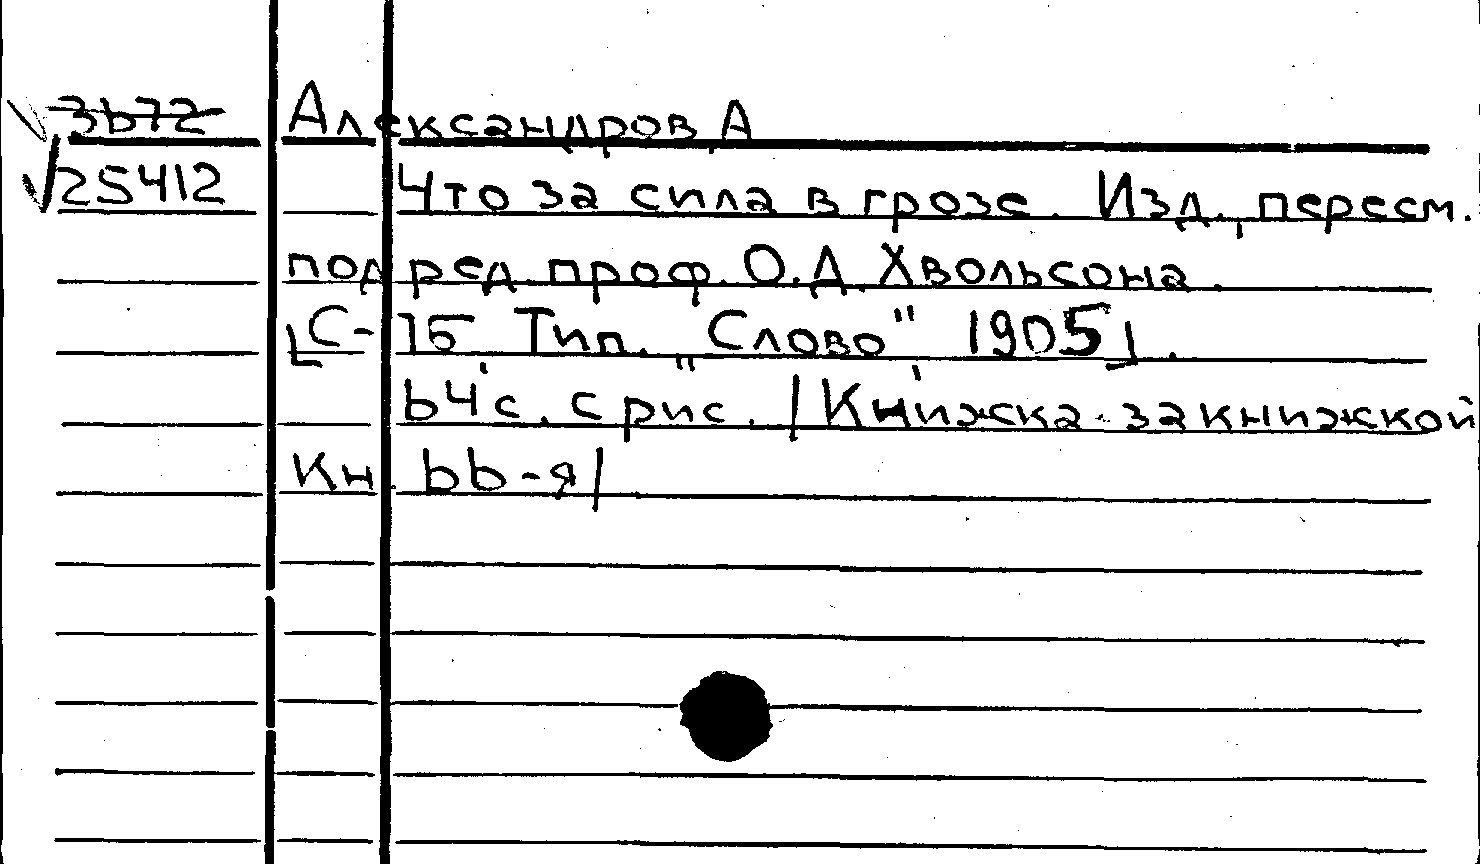 3672 Александров, А
25412 Что за сила в грозе. Изд., пересм.
под ред. проф. О.Д. Хвольсона.
[С-Пб, Тип. „Слово" 1905].
64 с. с рис. /Книжка за книжкой
Кн. 66-я/